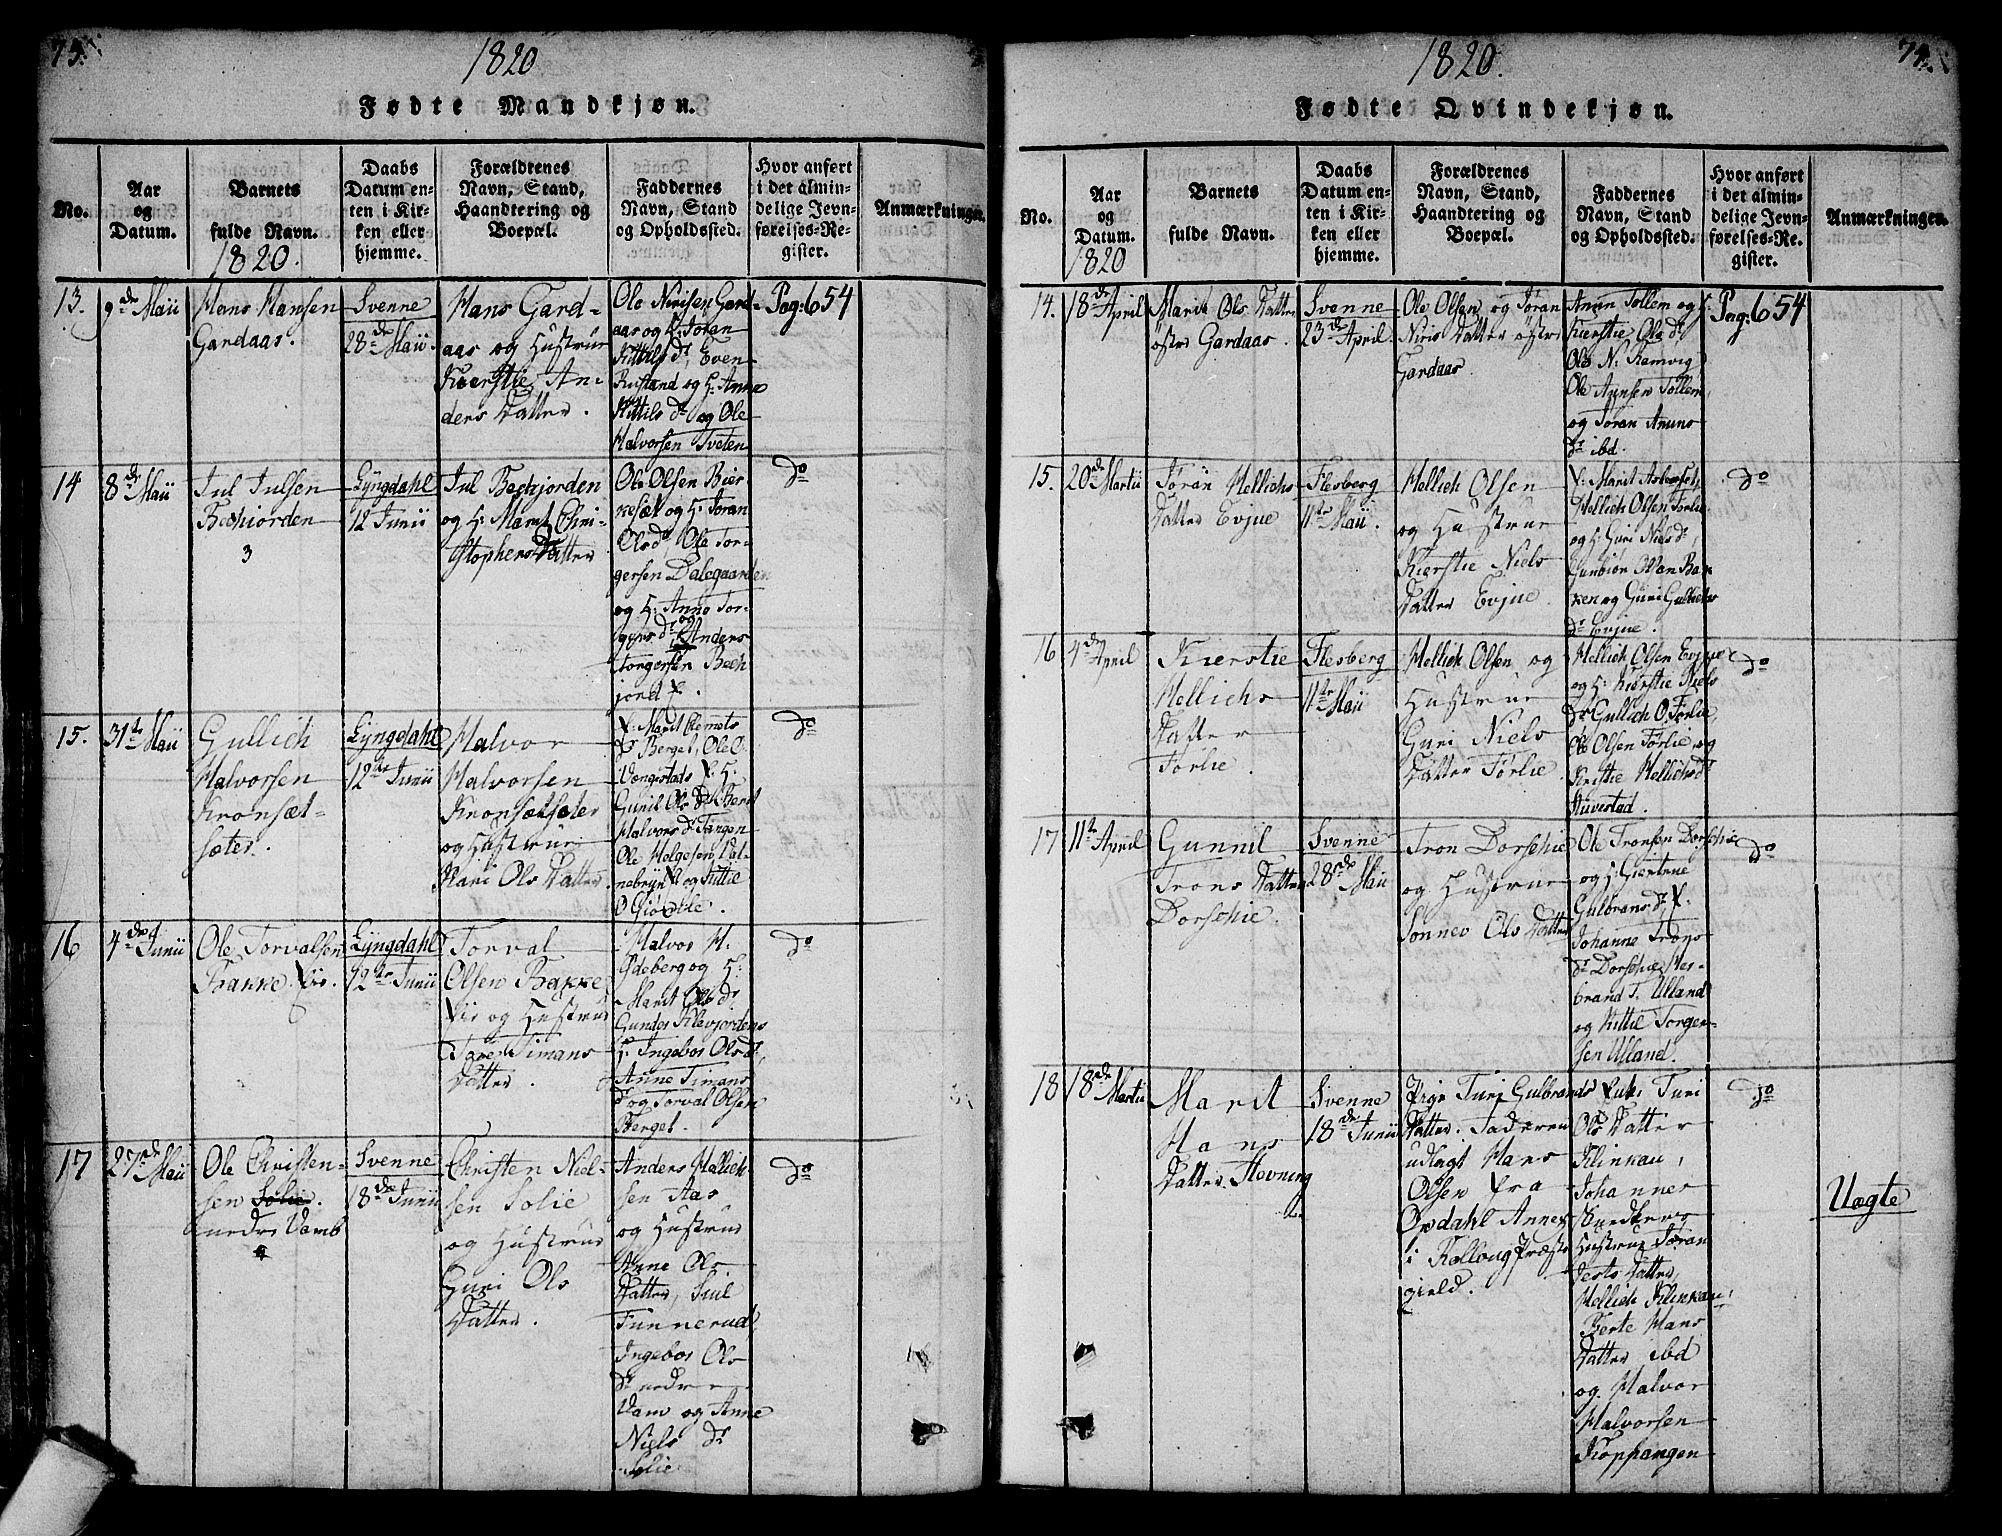 73.
1820
Fødte Mandkjøn.
No.
Aar
og
Datum.
Barnets
fulde Navn.
1820.
Daabs
Datum en-
ten i Kir-
ken eller
hjemme.
Forældrenes
Navn, Stand,
Haandtering og
Boepæl.
Faddernes
Navn, Stand
og Opholdssted.
Hvor anført
i det almin-
delige Jevn-
førelses-Re-
gister.
Anmærkninger.
13.
9de Maii
Hans Hansen
Gardaas.
Svenne
28de Maii.
Hans Gard-
aas og Hustrue
Kierstie An-
ders Datter.
Ole Nirisen Gard-
aas og H: Jøran
Kittils dr, Even
Rustand og H: Anne
Kittils dr og Ole
Halvorsen Tveten
Pag: 654
14
8de Maii
Jul Julsen
Bechiorden
3
Lyngdahl
12 Junii
Jul Bechjorden
og H: Marit Chri-
stophers Datter
Ole Olsen Bier
kesæt og H: Jøran
Olsdr, Ole Tor-
gersen Dalegaarden
og H: Anne Tor-
gers dr og Anders
Torgersen Bech
jord
do
15.
31te Maii
Gullich
Halvorsen
Kronsæt-
sæter.
Lyngdahl
12te Junii
Halvor
Halvorsen
Kronsætsæter
og Hustrue
Kari Ols Datter
Marit Clemets
dr Berget, Ole O.
Vangestads H.
Gunil Ols dr
Halvors dr Tangen
Ole Helgesen
og Kittil
do
16
4de Junii
Ole Torvalsen
Bakke
Lyngdahl
12te Junii
Torval
Olsen Bakke
og Hustrue
Timans
Datter.
Halvor H.
og H:
Marit Ols dr,
Klevjordens
H: Ingebor Ols dr,
Anne Timans
dr og Torval Olsen
Berget.
do
17
27de Maii
Ole Christen-
sen
nedre Vamb
Svenne
18de Junii
Christen Niel-
sen Solie
og Hustrue
Guri Ols
Datter.
Anders Hellich
sen Aas
og Hustrue
Anne Ols
Datter, Juul
Funnerud
Ingebor Ols
dr nedre
Vam og Anne
Niels dr
Solie
do
74.
1820.
Fødte Qvindekjøn.
No.
Aar
og
Datum.
1820
Barnets
fulde Navn.
Daabs
Datum en-
ten i Kir-
ken eller
hjemme.
Forældrenes
Navn, Stand,
Haandtering og
Boepæl.
Faddernes
Navn, Stand
og Opholdssted.
Hvor anført
i det almin-
delige Jevn-
førelses-Re-
gister.
Anmærkningen.
14.
18de April
Marit Ols Datter
østre Gardaas.
Svenne
23de April.
Ole Olsen og Jøran
Niris Datter østre
Gardaas.
Anun Tollem og H:
Kierstie Ole dr
Ole N. Ramvig
Ole Anunsen Tollem,
og Jøran Anuns
dr ibd.
Pag: 654
15.
20de Martii
Jøran Hellichs
Datter Evjue
Flesberg
11te Maii.
Hellich Olsen
og Hustrue
Kierstie Niels
Datter Evjue
Marit
Hellich Olsen Førlie
og H: Guri Niels dr,
Gunbiør Olsen Bak
ken og Guri Gulbichs
dr Evjue.
do
16
4de April
Kierstie
Hellichs
Datter
Førlie
Flesberg
11te Maii
Hellich Olsen og
Hustrue
Guri Niels
Datter Førlie
Hellich Olsen Evjue
og H: Kierstie Niels
dr Gullich O. Førlie,
Ole Olsen Førlie, og
Kirstie Hellichs dr
Huvestad.
do
17
11te April
Gunnil
Trons Datter
Dorschie.
Svenne
28de Maii
Tron Dorschie
og Hustrue
Sønnev Ols Datter
Ole Tronsen Dorschie
og H: Giertrue
Gulbrans dr,
Johanne Trons
dr Dorschie, Her-
brand T. Ulland
og Kittil Torger-
sen Ulland.
do
18
18de Martii
Marit
Hans
Datter Hovning
Svenne
18de Junii
Pige Turi Gulbrands
Datter. Faderen
udlagt Hans
Olsen fra
Opdahl Annex
i Rolloug Præste
gield.
Enke Turi
Ols Datter
Klinkau,
Johannes
Snedker og
Hustrue Jøran
Jests Datter,
Hellich Klinkau,
Berte Hans
Datter ibd
og Halvor
Halvorsen
Koppangen
do
Uægte